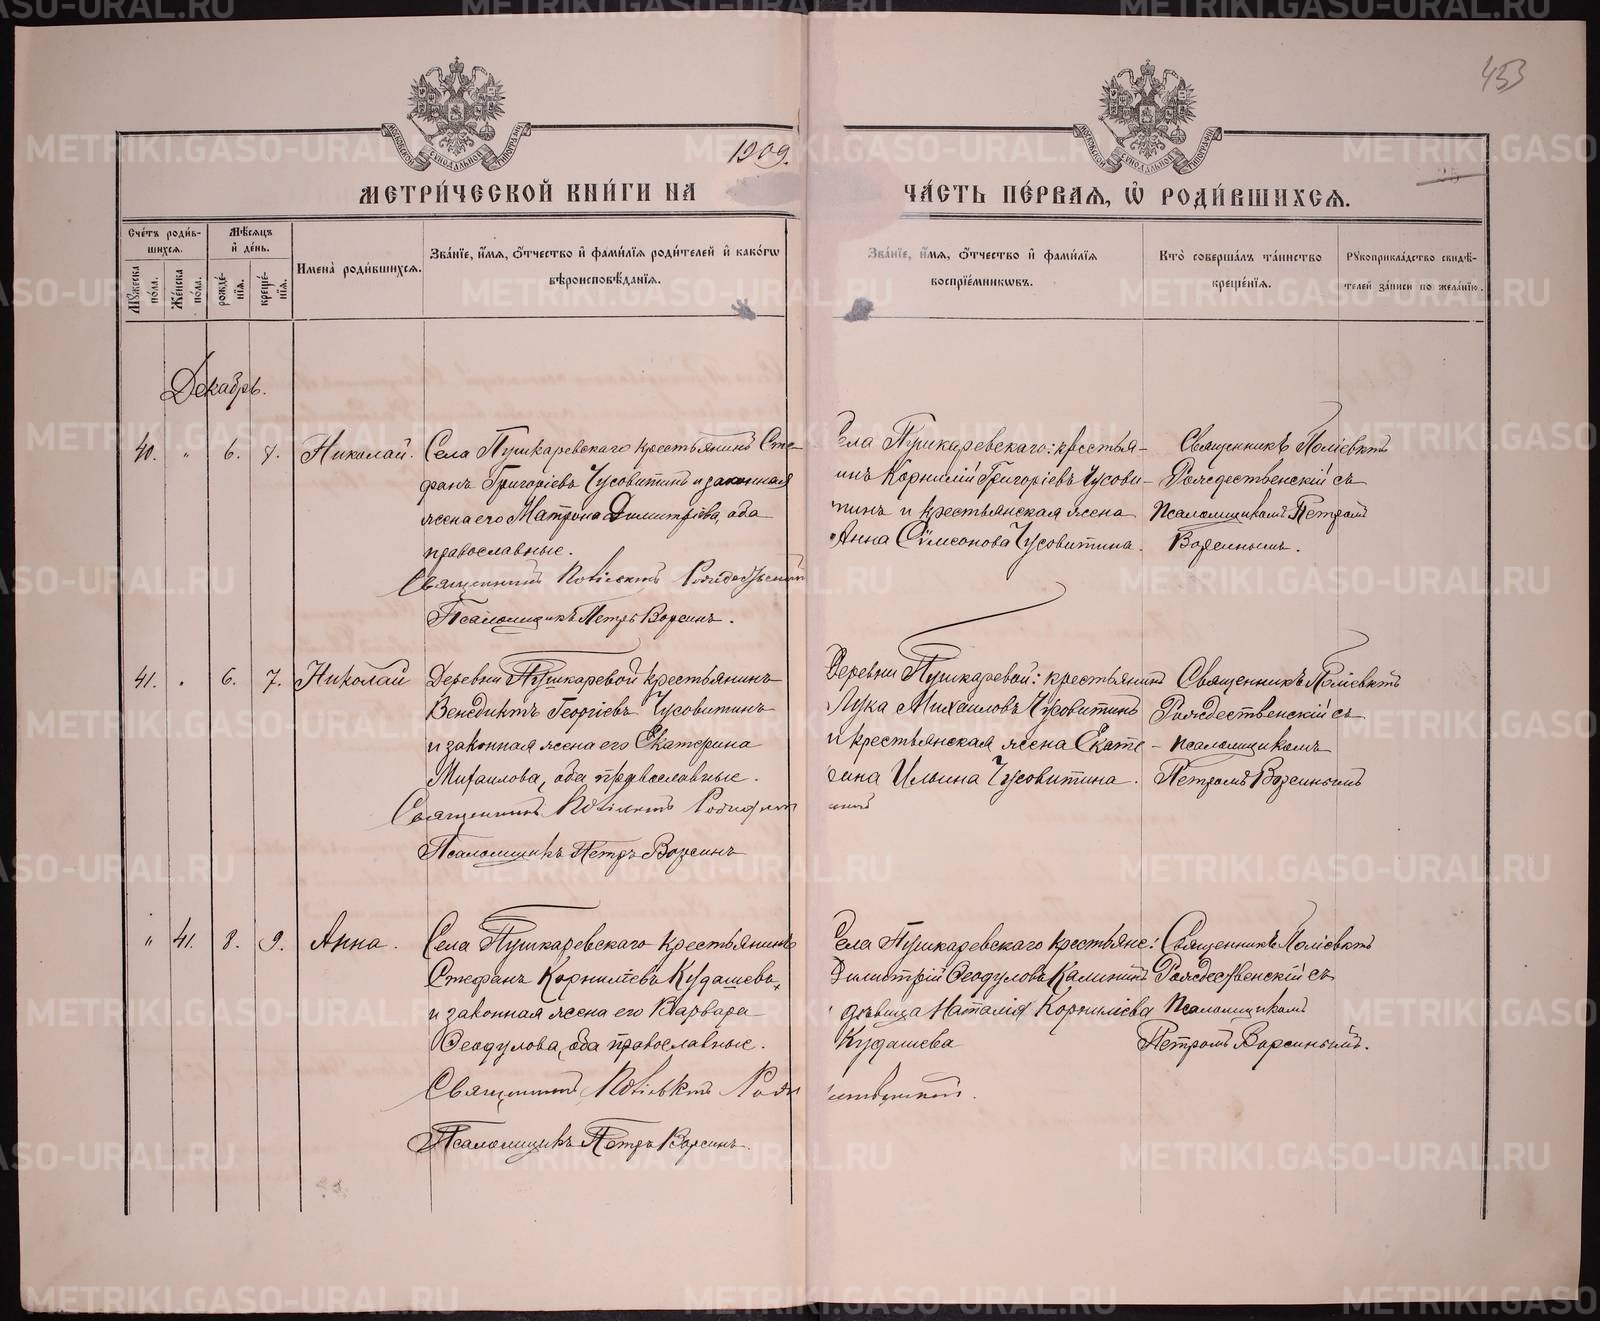 453
1909.
МЕТРИ́ЧЕСКОЙ КНИ́ГИ НА
ЧА́СТЬ ПЕ́РВАЯ, Ѡ҆ РОДИ́ВШИХСЯ.
Сче́тъ роди́в-
шихся.
Мѣ́сяцъ
и҆ де́нь.
Имена̀ роди́вшихся.
Зва́нїе, и҆́мя, ѻ҆́тчество и҆ фами́лїя роди́телей и҆ како́гѡ
вѣроисповѣ́данїя.
Зва́нїе, и҆́мя, ѻ҆́тчество и҆ фами́лїя
воспрїе́мниковъ.
Кто̀ соверша́лъ та́инство
креще́нїя.
Рꙋкоприкла́дство свидѣ́-
телей за́писи по жела́нїю.
Мꙋ́жеска
по́ла.
Же́нска
по́ла.
рожде́-
нїя.
креще́-
нїя.
Декабрь.
40. " 6. 8. Николай.
Села Пушкаревскаго крестьянинъ Сте-
фанъ Григоріевъ Чусовитинъ и законная
жена его Матрона Димитріева, оба
православные.
Священникъ Поліевктъ Рождественскій
Псаломщикъ Петръ Ворсинъ.
Села Пушкаревскаго: крестья-
инъ Корнилій Григоріевъ Чусови-
тинъ и крестьянская жена
Анна Сѵмеонова Чусовитина.
Священникъ Поліевктъ
Рождественскій съ
псаломщикомъ Петромъ
Ворсинымъ.
41. " 6. 7. Николай
Деревни Пушкаревой крестьянинъ
Венедиктъ Георгіевъ Чусовитинъ
и законная жена его Екатерина
Михаилова, оба православные.
Священникъ Поліевктъ
Псаломщикъ Петръ Ворсинъ
Деревни Пушкаревой: крестьянинъ
Лука Михаиловъ Чусовитинъ
и крестьянская жена Екате-
рина Ильина Чусовитина.
Священникъ Поліевктъ
Рождественскій съ
псаломщикомъ
Петромъ Ворсинымъ
" 41. 8. 9. Анна.
Села Пушкаревскаго крестьянинъ
Стефанъ Корниліевъ Кудашевъ,
и законная жена его Варвара
Ѳеодулова, оба православные.
Священникъ Поліевктъ Рож
Псаломщикъ Петръ Ворсинъ.
Села Пушкаревскаго крестьяне:
Димитрій Ѳеодуловъ Калининъ
дѣвица Наталія Корниліева
Кудашева
Священникъ Поліевктъ
Рождественскій съ
псаломщикомъ
Петромъ Ворсинымъ.
METRIKI.GASO-URAL.RU